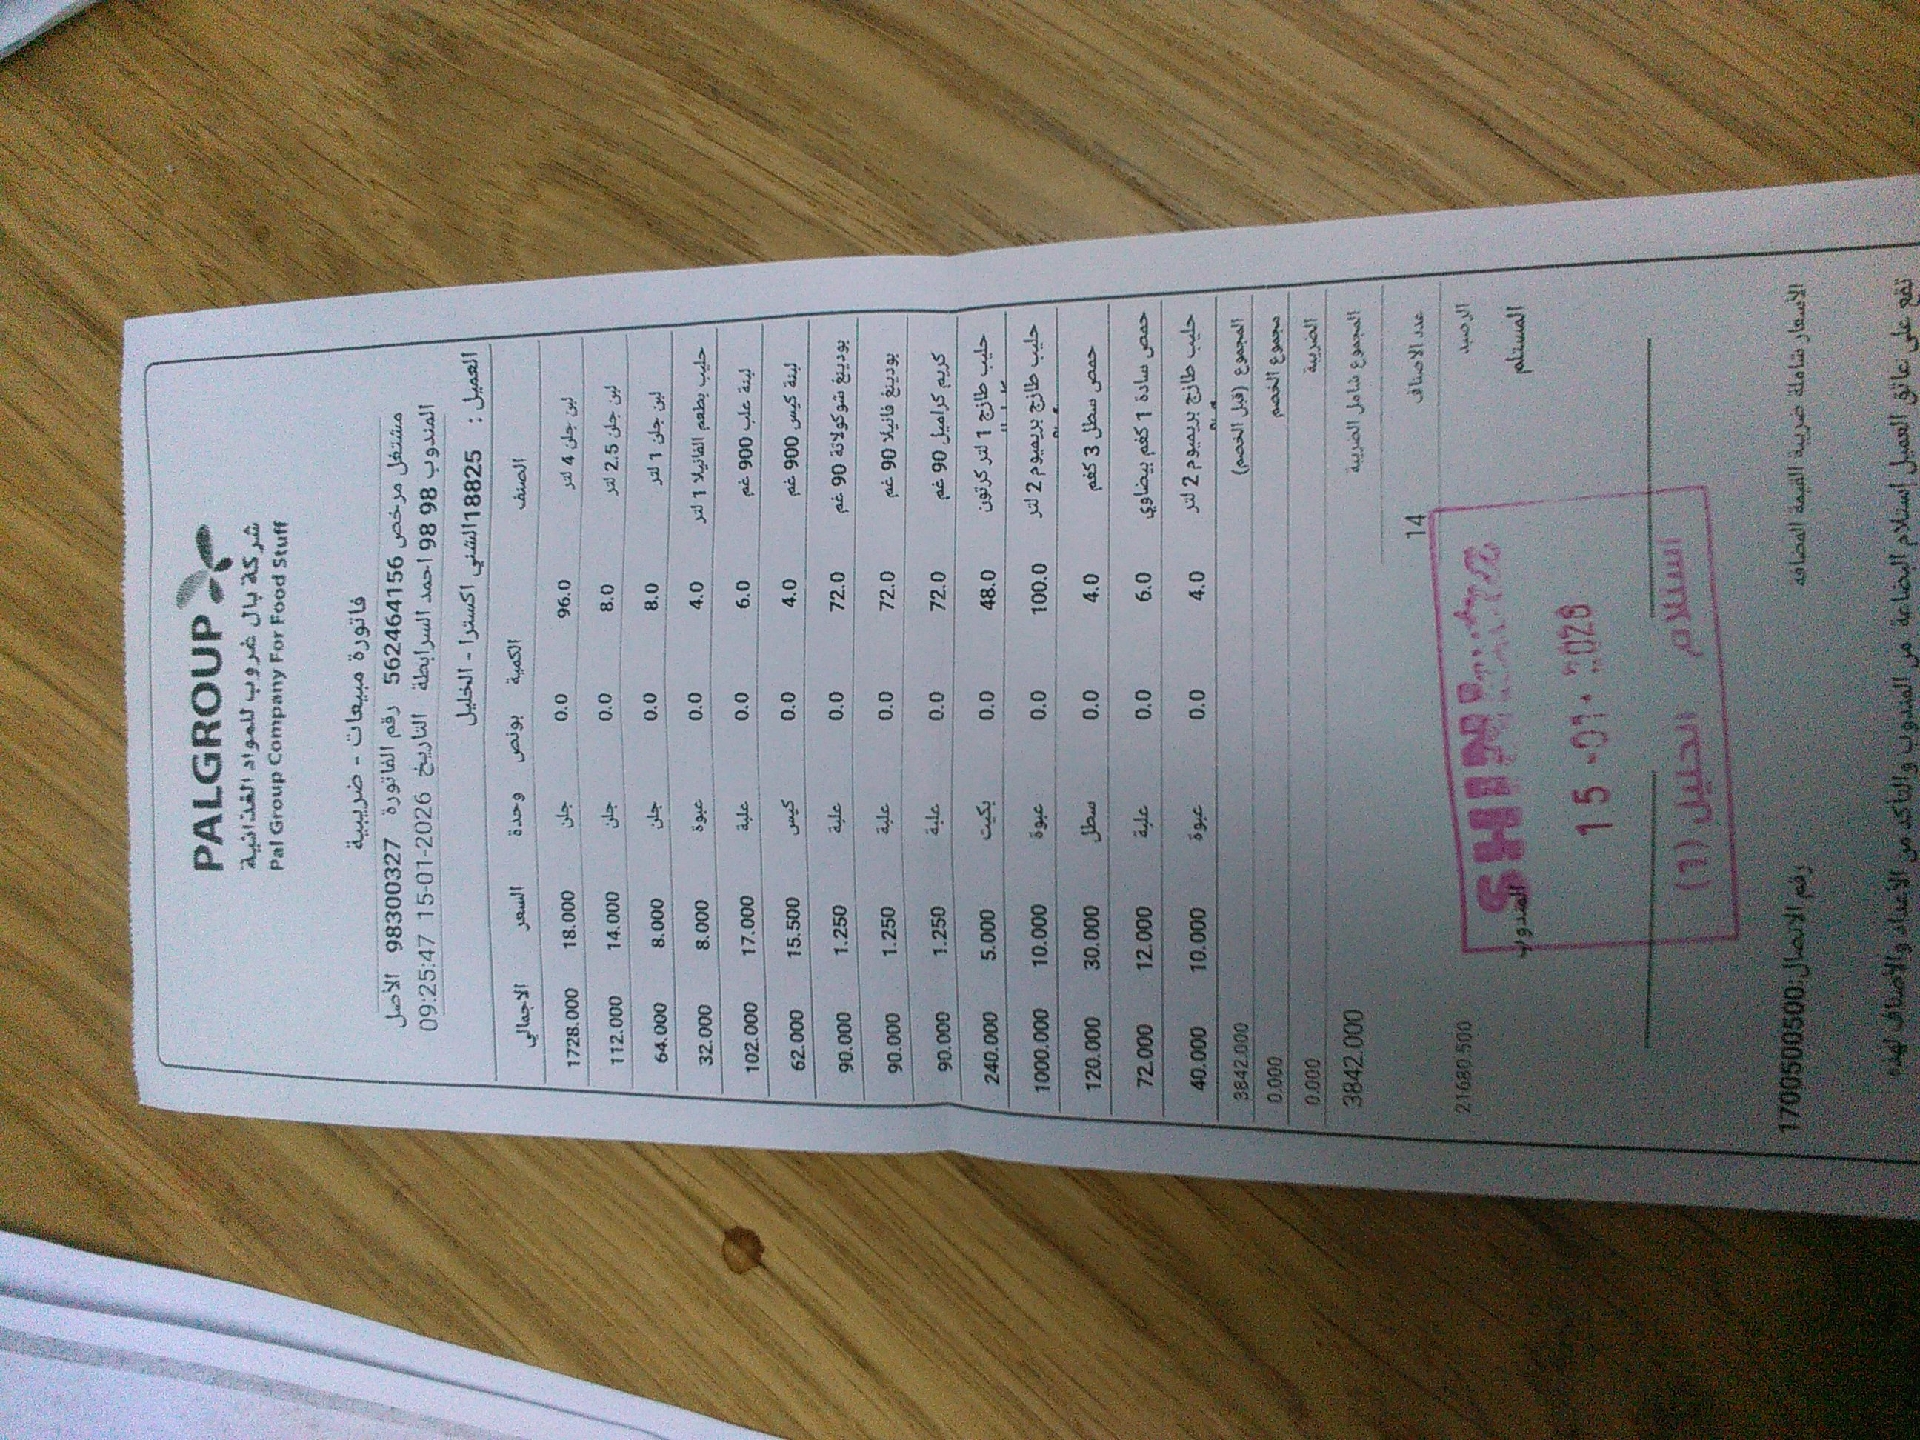 PALGROUP
شركة بال غروب للمواد الغذائية
Pal Group Company For Food Stuff
فاتورة مبيعات - ضريبية
مشتغل مرخص 562464156 رقم الفاتورة 98300327 الأصل
المندوب 98 98 احمد السرابطة التاريخ 15-01-2026 09:25:47
العميل : 18825الشني اكسترا - الخليل
الصنف الكمية بونص وحدة السعر الاجمالي
لبن جلن 4 لتر 96.0 0.0 جلن 18.000 1728.000
لبن جلن 2.5 لتر 8.0 0.0 جلن 14.000 112.000
لبن جلن 1 لتر 8.0 0.0 جلن 8.000 64.000
حليب بطعم الفانيلا 1 لتر 4.0 0.0 عبوة 8.000 32.000
لبنة علب 900 غم 6.0 0.0 علبة 17.000 102.000
لبنة كيس 900 غم 4.0 0.0 كيس 15.500 62.000
بودينغ شوكولاتة 90 غم 72.0 0.0 علبة 1.250 90.000
بودينغ فانيلا 90 غم 72.0 0.0 علبة 1.250 90.000
كريم كراميل 90 غم 72.0 0.0 علبة 1.250 90.000
حليب طازج 1 لتر كرتون 48.0 0.0 بكيت 5.000 240.000
حليب طازج بريميوم 2 لتر 100.0 0.0 عبوة 10.000 1000.000
حمص سطل 3 كغم 4.0 0.0 سطل 30.000 120.000
حمص سادة 1 كغم بيضاوي 6.0 0.0 علبة 12.000 72.000
حليب طازج بريميوم 2 لتر 4.0 0.0 عبوة 10.000 40.000
المجموع (قبل الخصم) 3842.000
مجموع الخصم 0.000
الضريبة 0.000
المجموع شامل الضريبة 3842.000
عدد الاصناف 14
الرصيد 21680.500
المستلم المندوب
15 -01- 2026
استلام الخليل (1)
الاسعار شاملة ضريبة القيمة المضافة رقم الاتصال:1700500500
تقع على عاتق العميل إستلام البضاعة من المندوب والتأكد من الأعداد والاصناف لهذه